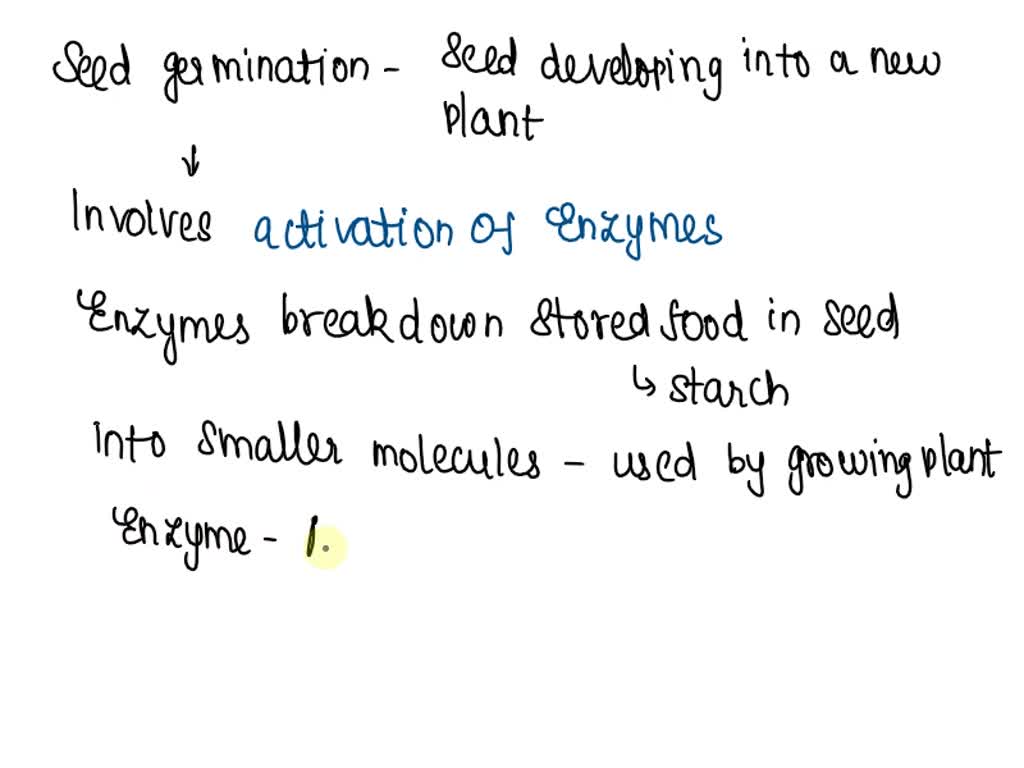 Seed germination - Seed developing into a new
plant
↓
Involves activation of Enzymes
Enzymes breakdown stored food in seed
↳ starch
into smaller molecules - used by growing plant
Enzyme -